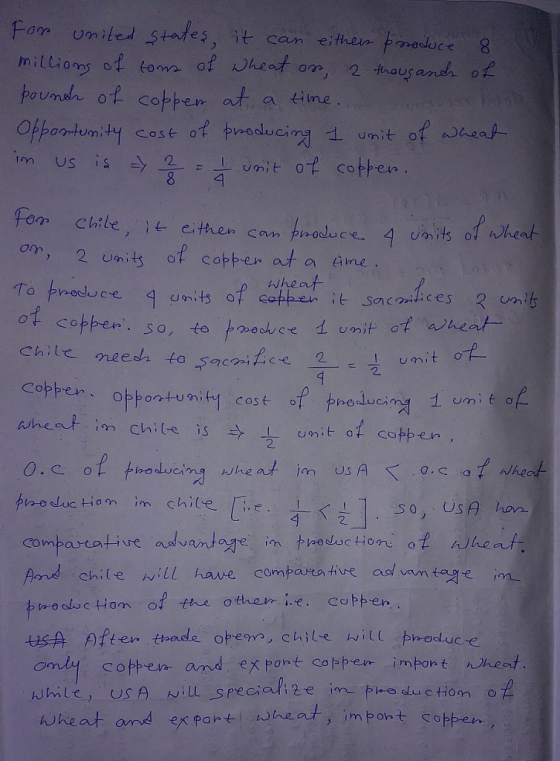 For united states, it can either produce 8
millions of tons of wheat or, 2 thousands of
pounds of copper at a time.
Opportunity cost of producing 1 unit of wheat
in US is ⇒ 2/8 = 1/4 unit of copper.
For chile, it either can produce 4 units of wheat
or, 2 units of copper at a time.
To produce 4 units of copper wheat it sacrifices 2 units
of copper. so, to produce 1 unit of wheat
chile needs to sacrifice 2/4 = 1/2 unit of
copper. opportunity cost of producing 1 unit of
wheat in chile is ⇒ 1/2 unit of copper.
O.C of producing wheat in USA < O.C of wheat
production in chile [i.e. 1/4 < 1/2]. so, USA has
comparative advantage in production of wheat.
And chile will have comparative advantage in
production of the other i.e. copper.
USA After trade opens, chile will produce
only copper and export copper import wheat.
while, USA will specialize in production of
wheat and export wheat, import copper.